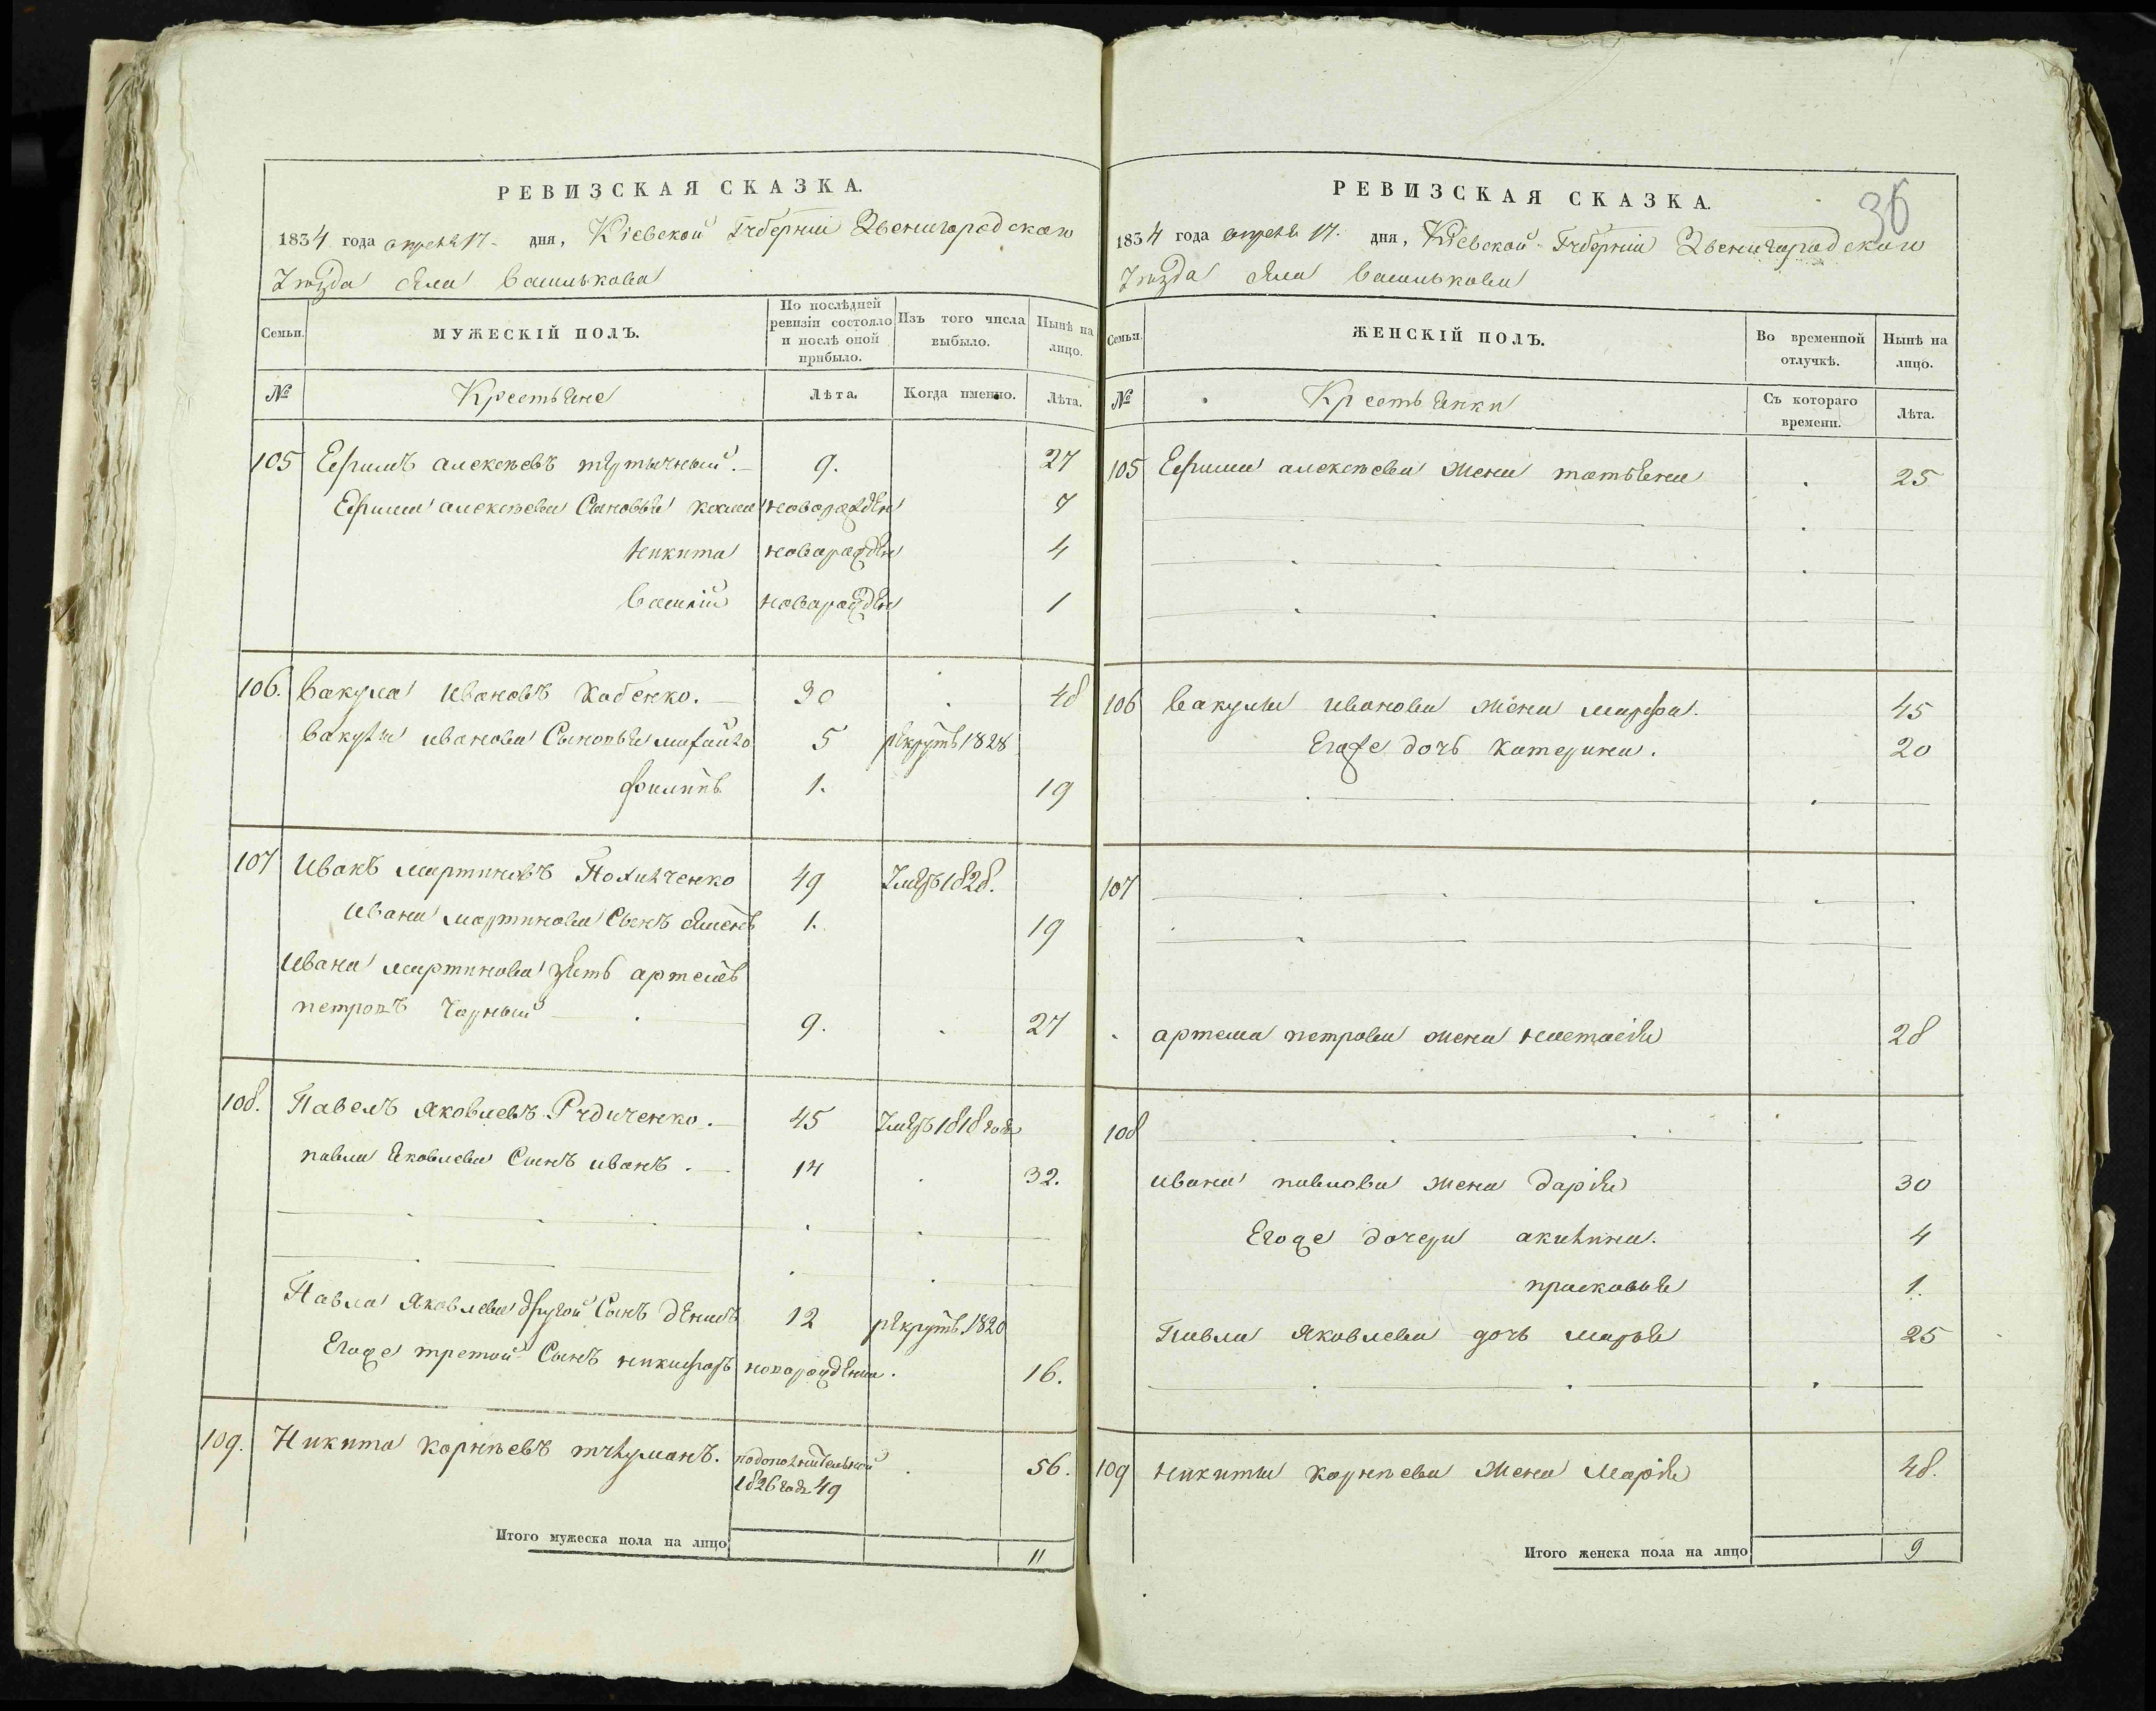 РЕВИЗСКАЯ СКАЗКА.
1834 года апреля 17 дня, Кіевской Губерніи Звенигородскаго
Уезда села Василькова
Семьи. МУЖЕСКІЙ ПОЛЪ. По послѣдней ревизіи состояло и послѣ оной прибыло. Изъ того числа выбыло. Нынѣ на лицо.
№ Крестьяне Лѣта. Когда именно. Лѣта.
105 Ефимъ алексѣевъ 9. 27
Ефима алексѣева Сыновья косма новорожден 7
Никита новорожден 4
Василій новорожден 1
106. Вакула Ивановъ Кобенко. 30 48
Вакулы иванова Сыновья михайло 5 рекрутъ 1828
филипъ 1. 19
107 Иванъ мартиновъ 49 Умеръ 1828.
Ивана мартинова Сынъ семенъ 1. 19
Ивана мартинова зять артемъ
петровъ Чорный 9. 27
108. Павелъ Яковлевъ Рудиченко. 45 Умеръ 1818 года
павла яковлева Сынъ иванъ. 14 32.
Павла Яковлева другой Сынъ денисъ 12 рекрутъ 1820
Егоже третой Сынъ никифоръ новорожденъ. 16.
109. Никита корнѣевъ 56.
1826 года 49
Итого мужеска пола на лицо 11
36
РЕВИЗСКАЯ СКАЗКА.
1834 года апреля 17. дня, Кіевской Губерніи Звенигородскаго
Уезда села Василькова
Семьи. ЖЕНСКІЙ ПОЛЪ. Во временной отлучкѣ. Нынѣ на лицо.
№ Крестьянки Съ котораго времени. Лѣта.
105 Ефима алексѣева жена татьяна 25
106 Вакулы иванова жена марфа. 45
Егоже дочь катерина. 20
107
артема петрова жена настасія 28
108
ивана павлова жена дарія 30
Егоже дочери акилина. 4
прасковья 1.
Павла Яковлева дочь марья 25
109 никиты корнѣева жена марія 48.
Итого женска пола на лицо 9